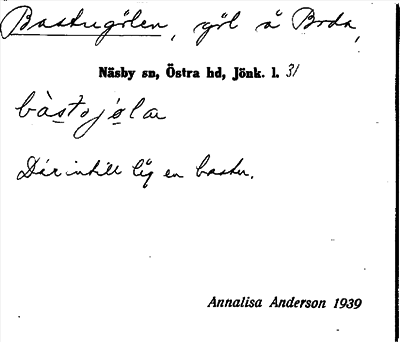 Bastugölen, göl å Boda,
Näsby sn, Östra hd, Jönk. l. 31
bàstojø̀la
Där intill låg en bastu.
Annalisa Anderson 1939